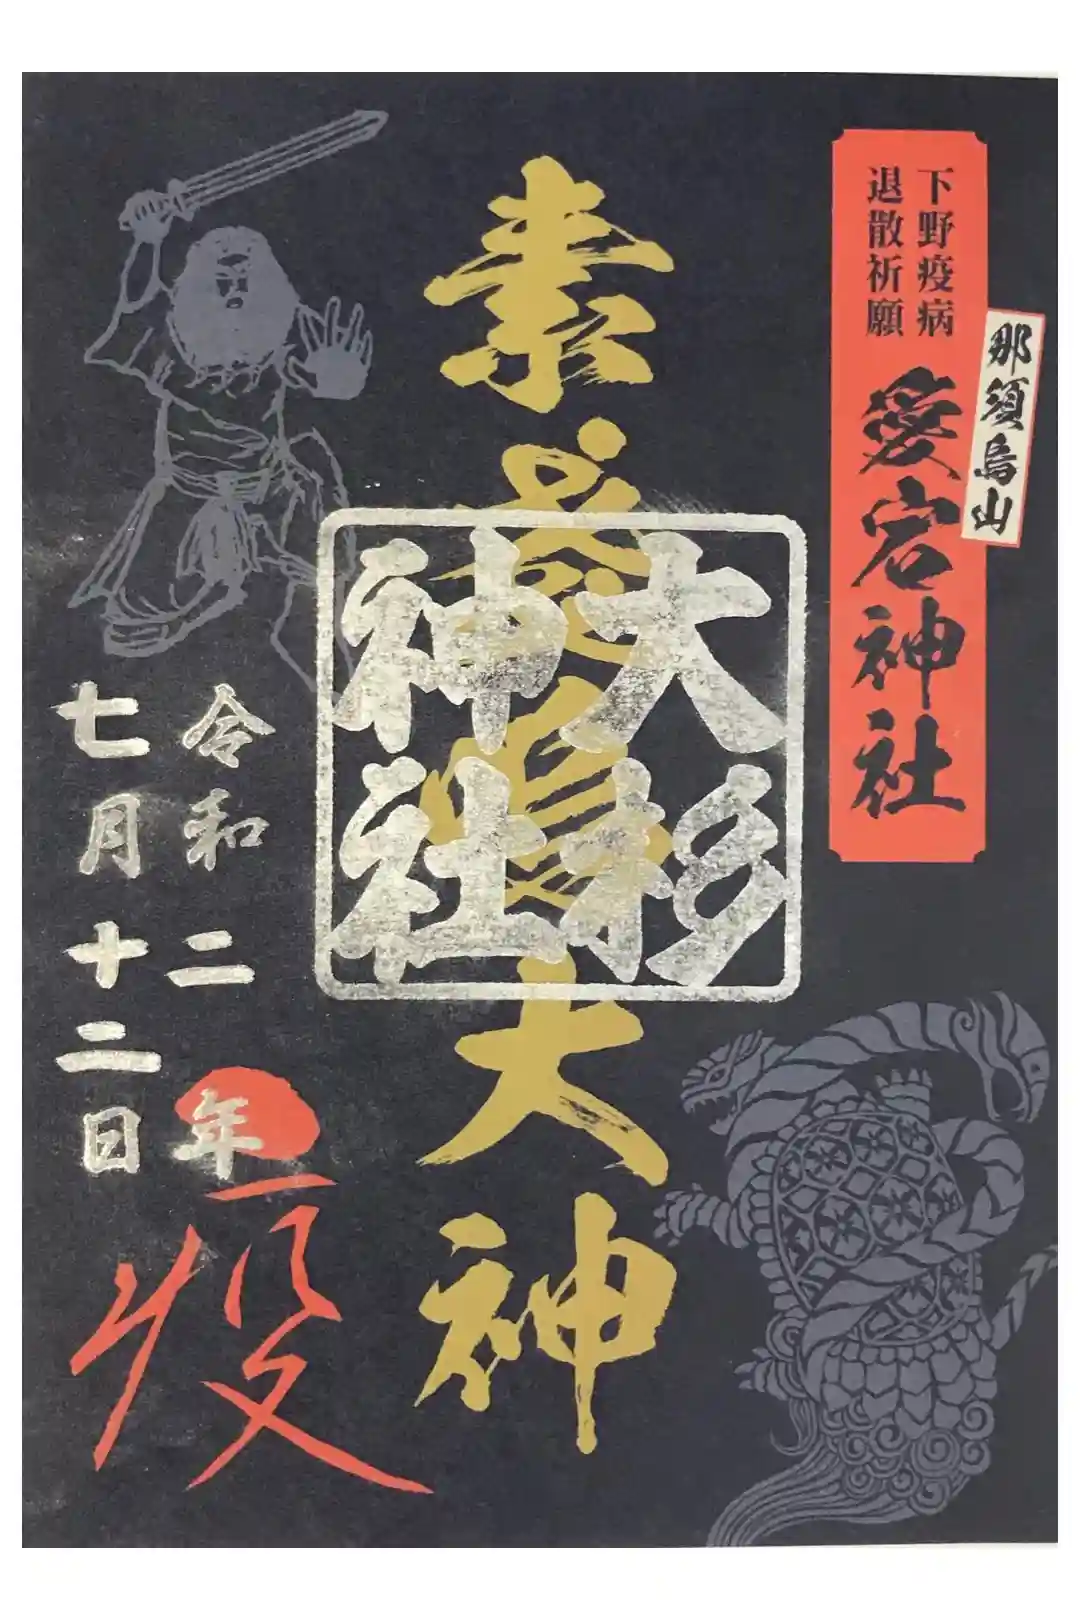 下野疫病
退散祈願
愛宕神社
那須烏山
素戔嗚大神
大杉
神社
令和二年
七月十二日
疫